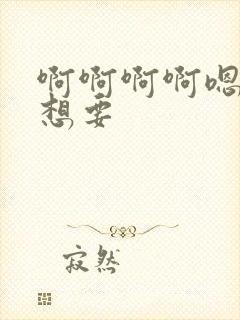 啊啊啊啊嗯
想要
寂然